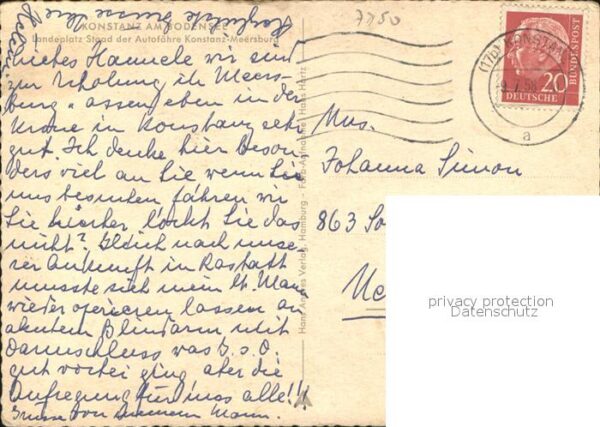 Herzlichste Grüsse Ihre
7750
KONSTANZ AM BODENSEE
Landeplatz Staad der Autofähre Konstanz-Meersburg
Liebes Hannele wir sind
zur Erholung in Meers-
burg, assen eben in der
Krone in Konstanz sehr
gut. Ich denke hier beson
ders viel an Sie wenn Sie
uns besuchen fahren wir
Sie hierher lockt Sie das
nicht? Gleich nach unse-
rer Ankunft in Rastatt
musste sich mein lb. Mann
wieder operieren lassen an
akutem Blindarm mit
Darmschluss was G.s.D.
gut vorbei ging aber die
Aufregung für uns alle!!!
Grüsse von meinem Mann.
Hans Andres Verlag, Hamburg - Farb-Aufnahme: Hans Hartz
(17b) KONSTANZ
9.7.58
a
20
DEUTSCHE
BUNDESPOST
Mrs.
Johanna Simon
863 So
Ne
privacy protection
Datenschutz